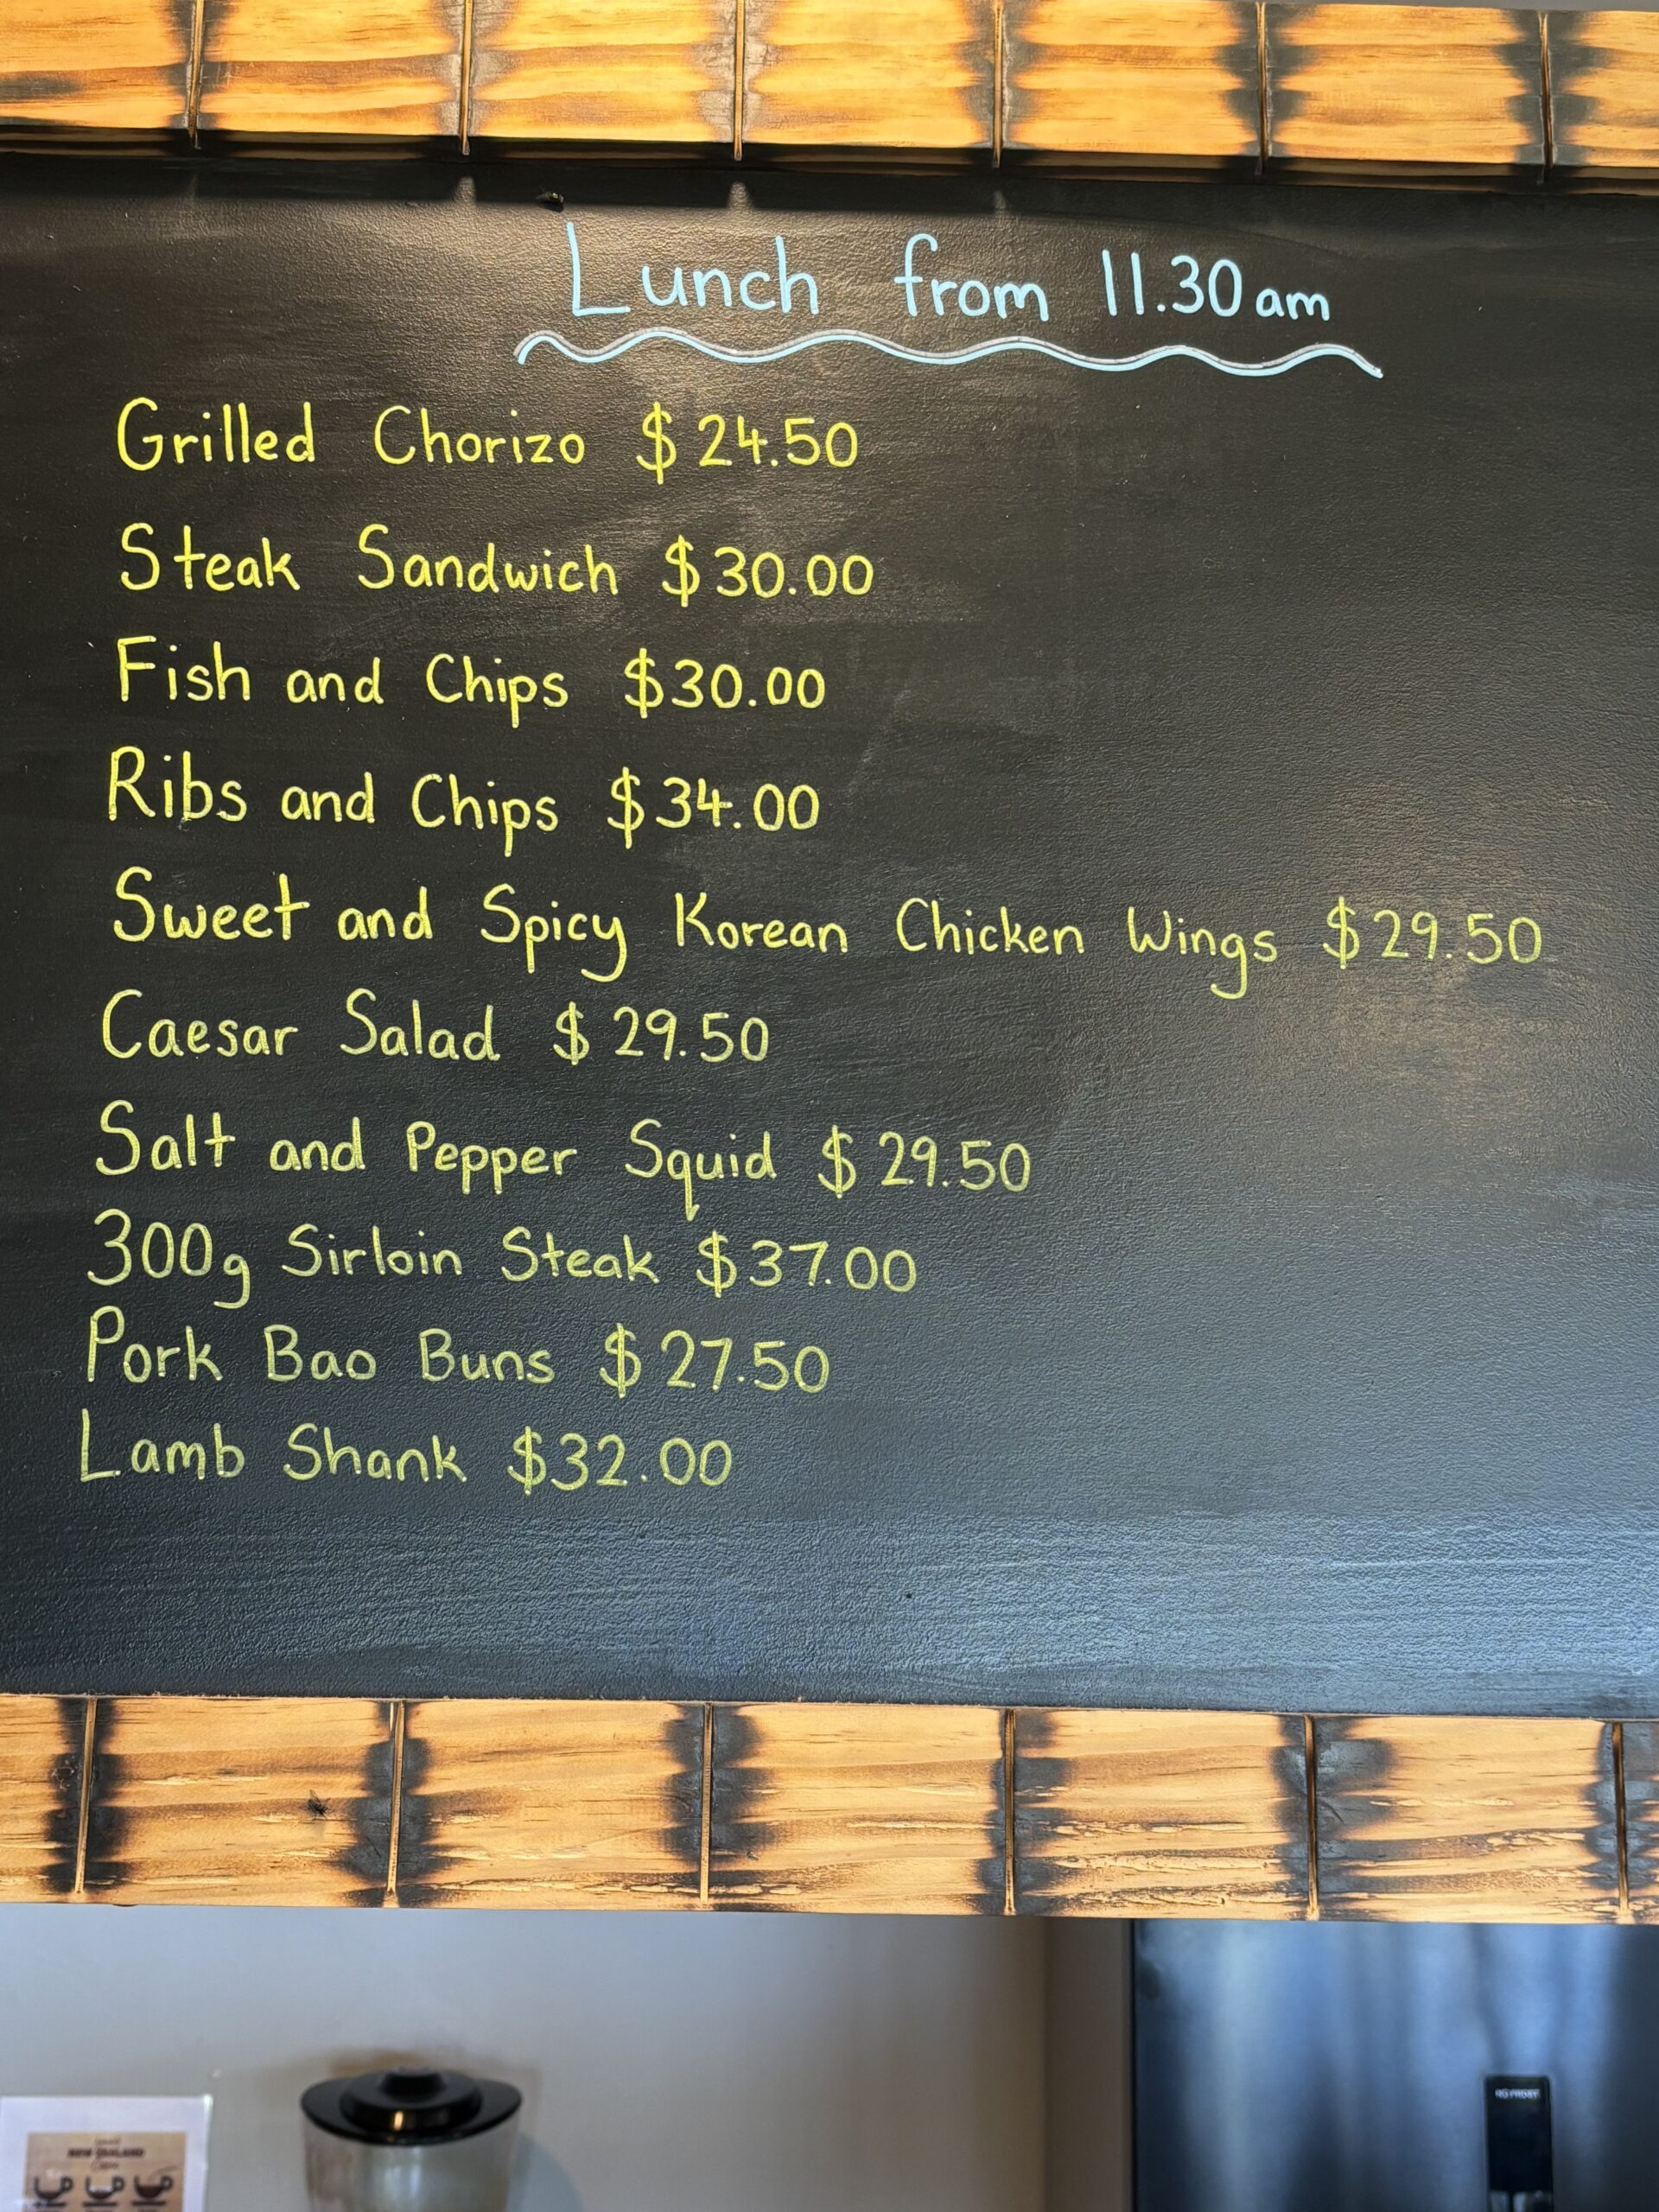 Lunch from 11.30am
Grilled Chorizo $24.50
Steak Sandwich $30.00
Fish and Chips $30.00
Ribs and Chips $34.00
Sweet and Spicy Korean Chicken Wings $29.50
Caesar Salad $29.50
Salt and Pepper Squid $29.50
300g Sirloin Steak $37.00
Pork Bao Buns $27.50
Lamb Shank $32.00
NEW ZEALAND